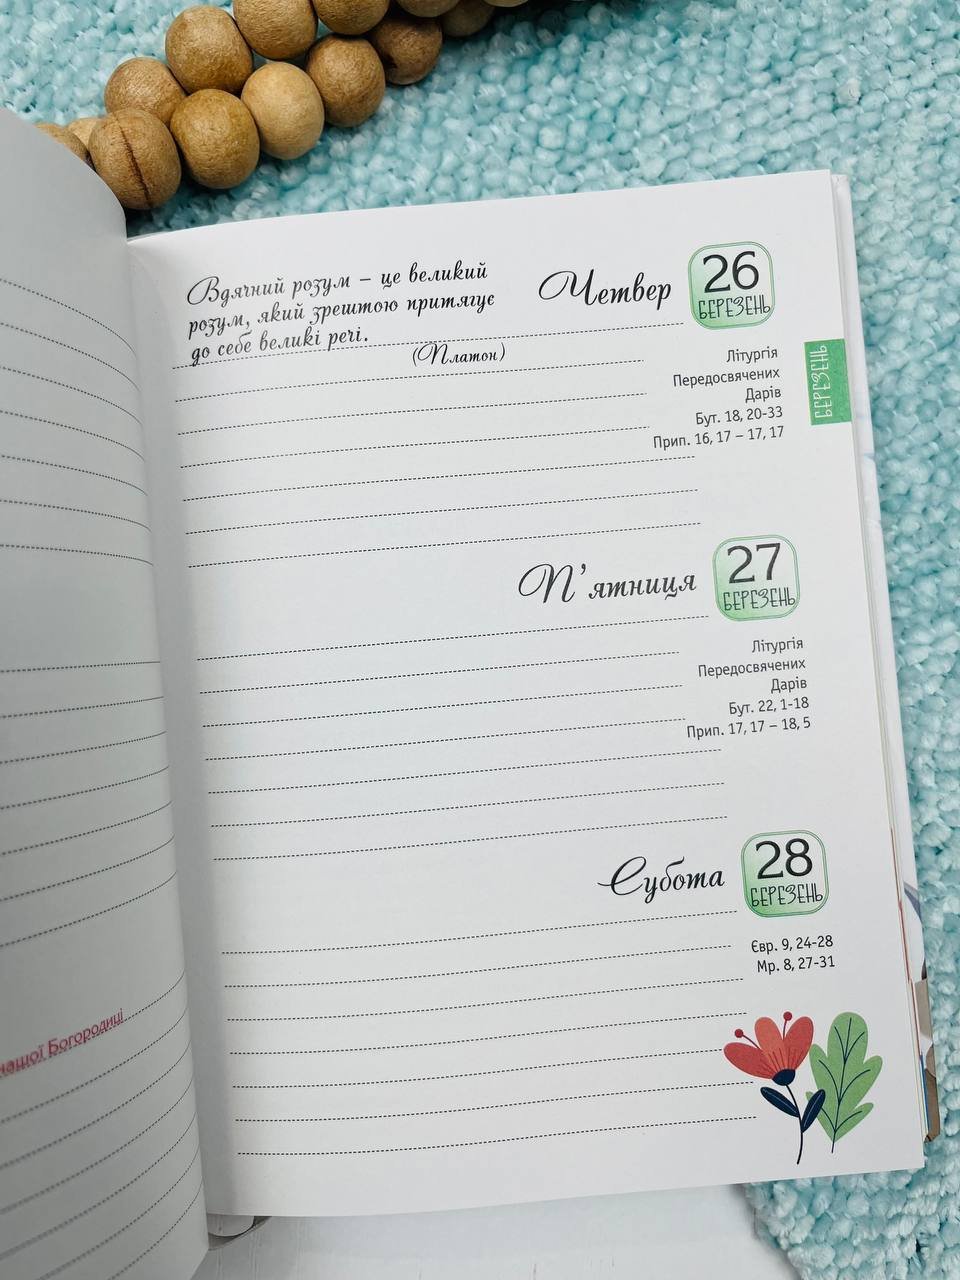 Вдячний розум – це великий
розум, який зрештою притягує
до себе великі речі.
(Платон)
Четвер
26
БЕРЕЗЕНЬ
Літургія
Передосвячених
Дарів
Бут. 18, 20-33
Прип. 16, 17 – 17, 17
БЕРЕЗЕНЬ
П'ятниця
27
БЕРЕЗЕНЬ
Літургія
Передосвячених
Дарів
Бут. 22, 1-18
Прип. 17, 17 – 18, 5
Субота
28
БЕРЕЗЕНЬ
Євр. 9, 24-28
Мр. 8, 27-31
Богородиці